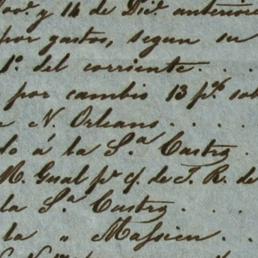 Nov.e y 14 de Dic.e anterior
por gastos, segun su
1.o del corriente . . .
por cambio 13 p.% sob
a N Orleans . . . .
do á la S.a Castro . .
M. Gual p.r c/. de J. R. de
la S.a Castro . . . .
la " Massieu . . .